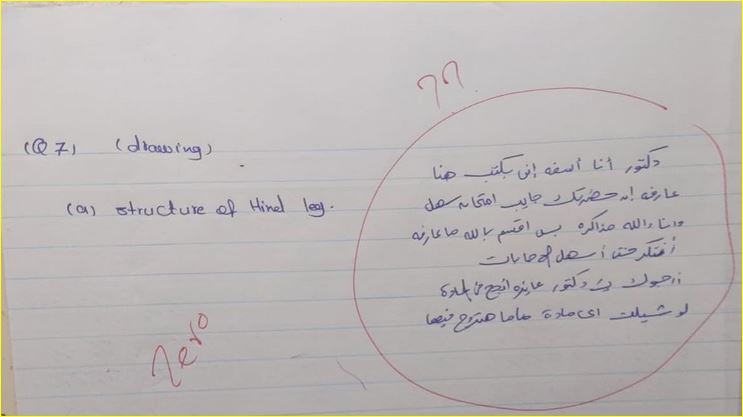 (Q7) (drawing)
(a) structure of Hind leg.
؟؟
دكتور أنا أسفه إني بكتب هنا
عارفه إن حضرتك جايب امتحان سهل
وانا والله مذاكره بس اقسم بالله ما عارفه
أفتكر حتى أسهل الاجابات
ارجوك يا دكتور عايزه انجح في المادة
لو شيلت اى مادة ماما هتروح فيها
zero